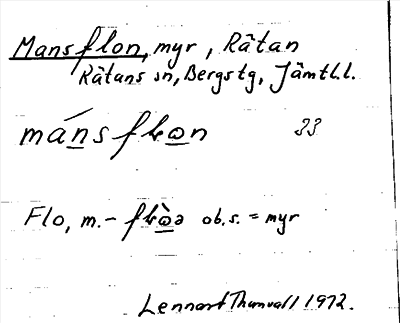 Mansflon, myr, Rätan
Rätans sn, Bergs tg, Jämtl.l.
mánsflₒn 33
Flo, m. - ob.s. = myr
Lennart Thunvall 1972.